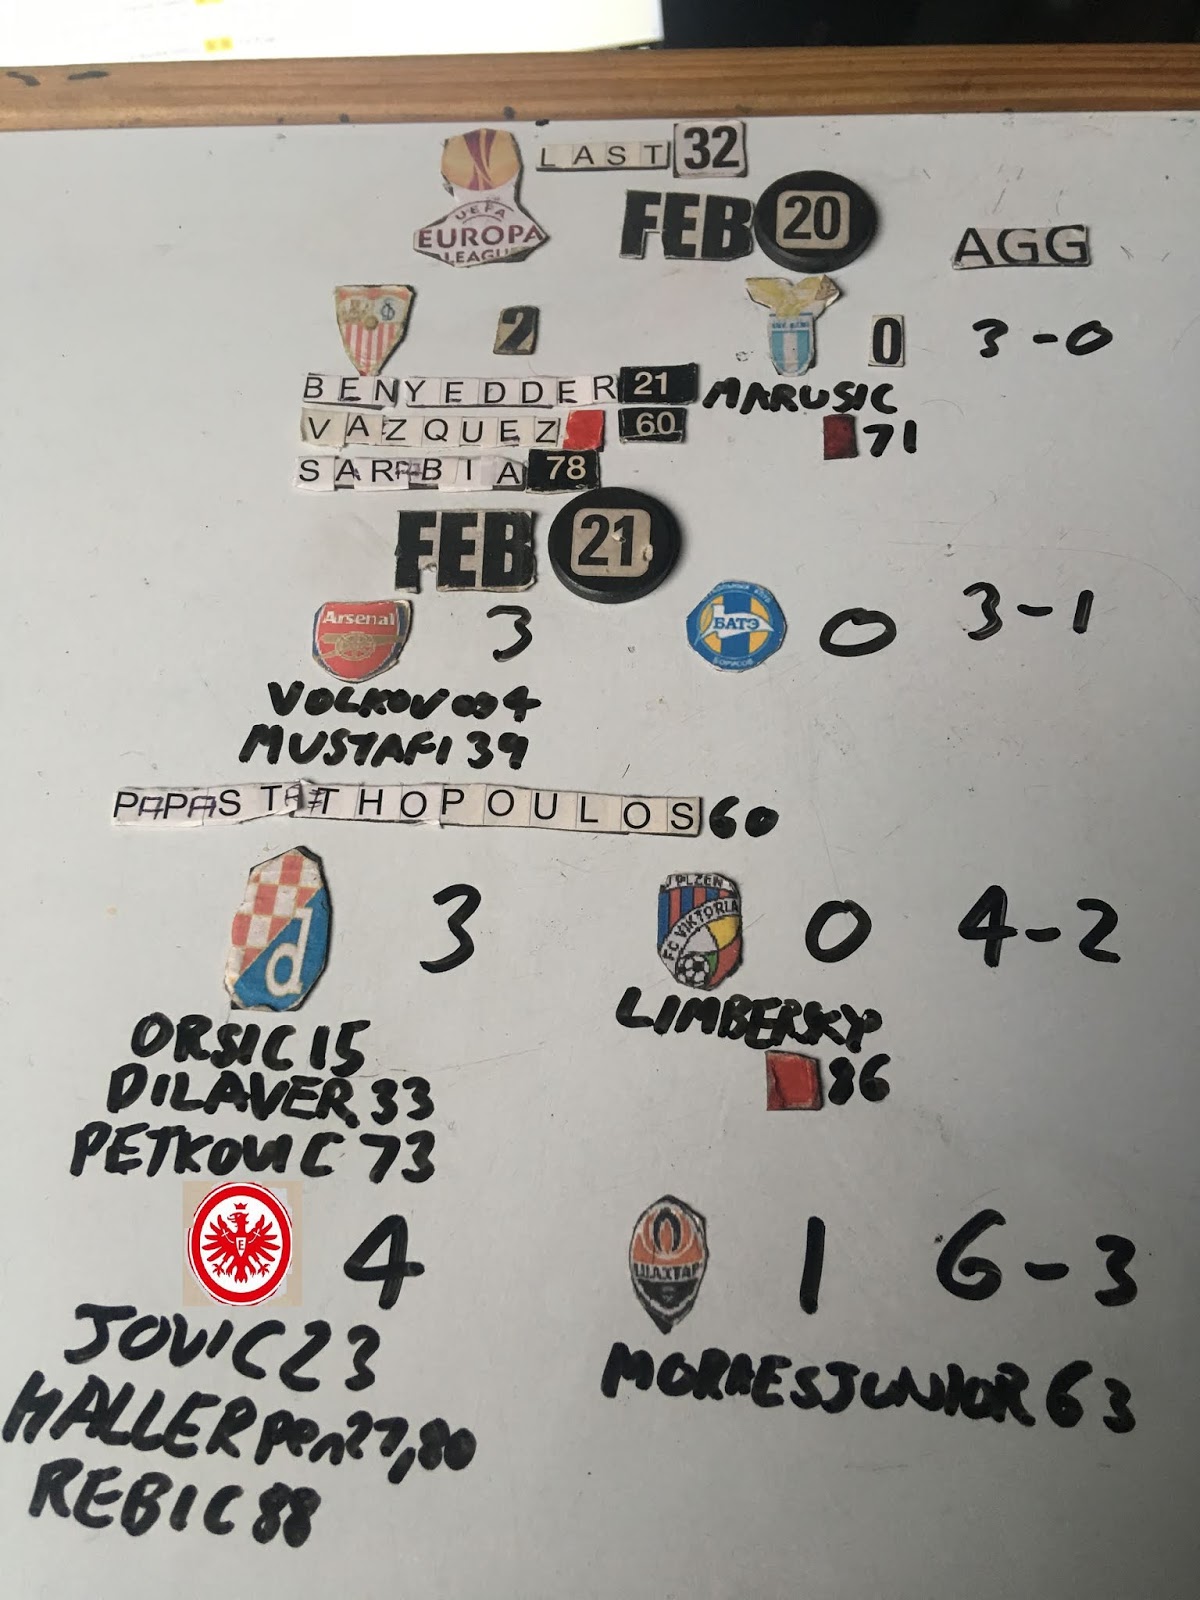 LAST 32
UEFA
EUROPA
LEAGUE
FEB 20
AGG
2 0 3-0
BENYEDDER 21 MARUSIC
VAZQUEZ 60 71
SARABIA 78
FEB 21
Arsenal 3 БАТЭ БОРИСОВ 0 3-1
VOLKOV OG 4
MUSTAFI 39
PAPASTATHOPOULOS 60
d 3 PLZEN FC VIKTORIA 0 4-2
ORSIC 15 LIMBERSKY
DILAVER 33 86
PETKOVIC 73
E 4 ШАХТАР 1 6-3
JOVIC 23 MORAESJUNIOR 63
HALLER pen 27,80
REBIC 88